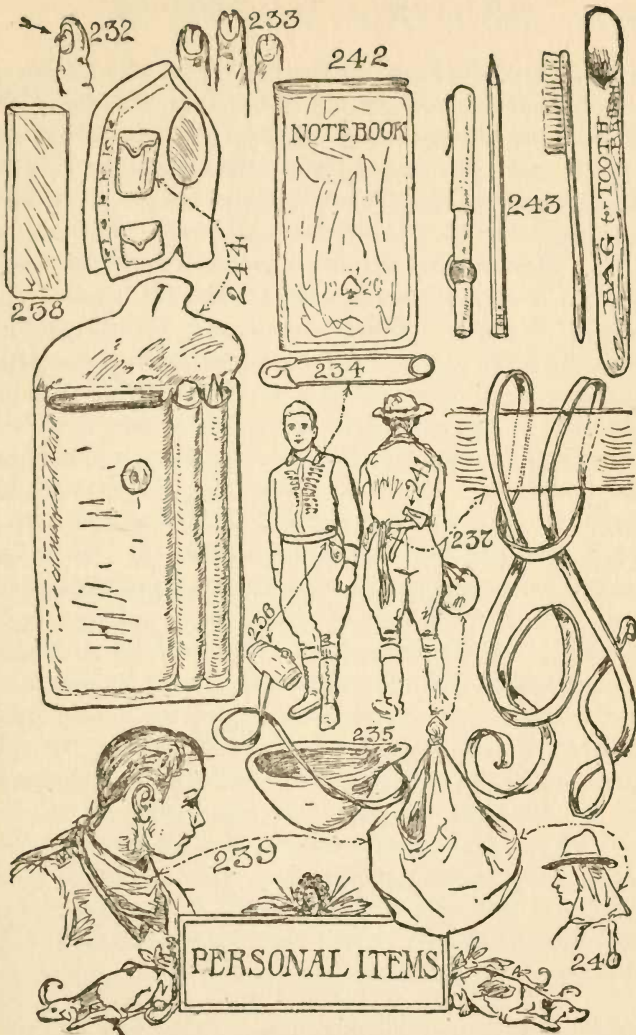 232
233
242
NOTEBOOK
243
BAG for TOOTH
BRUSH
238
244
234
241
237
236
235
239
240
PERSONAL ITEMS